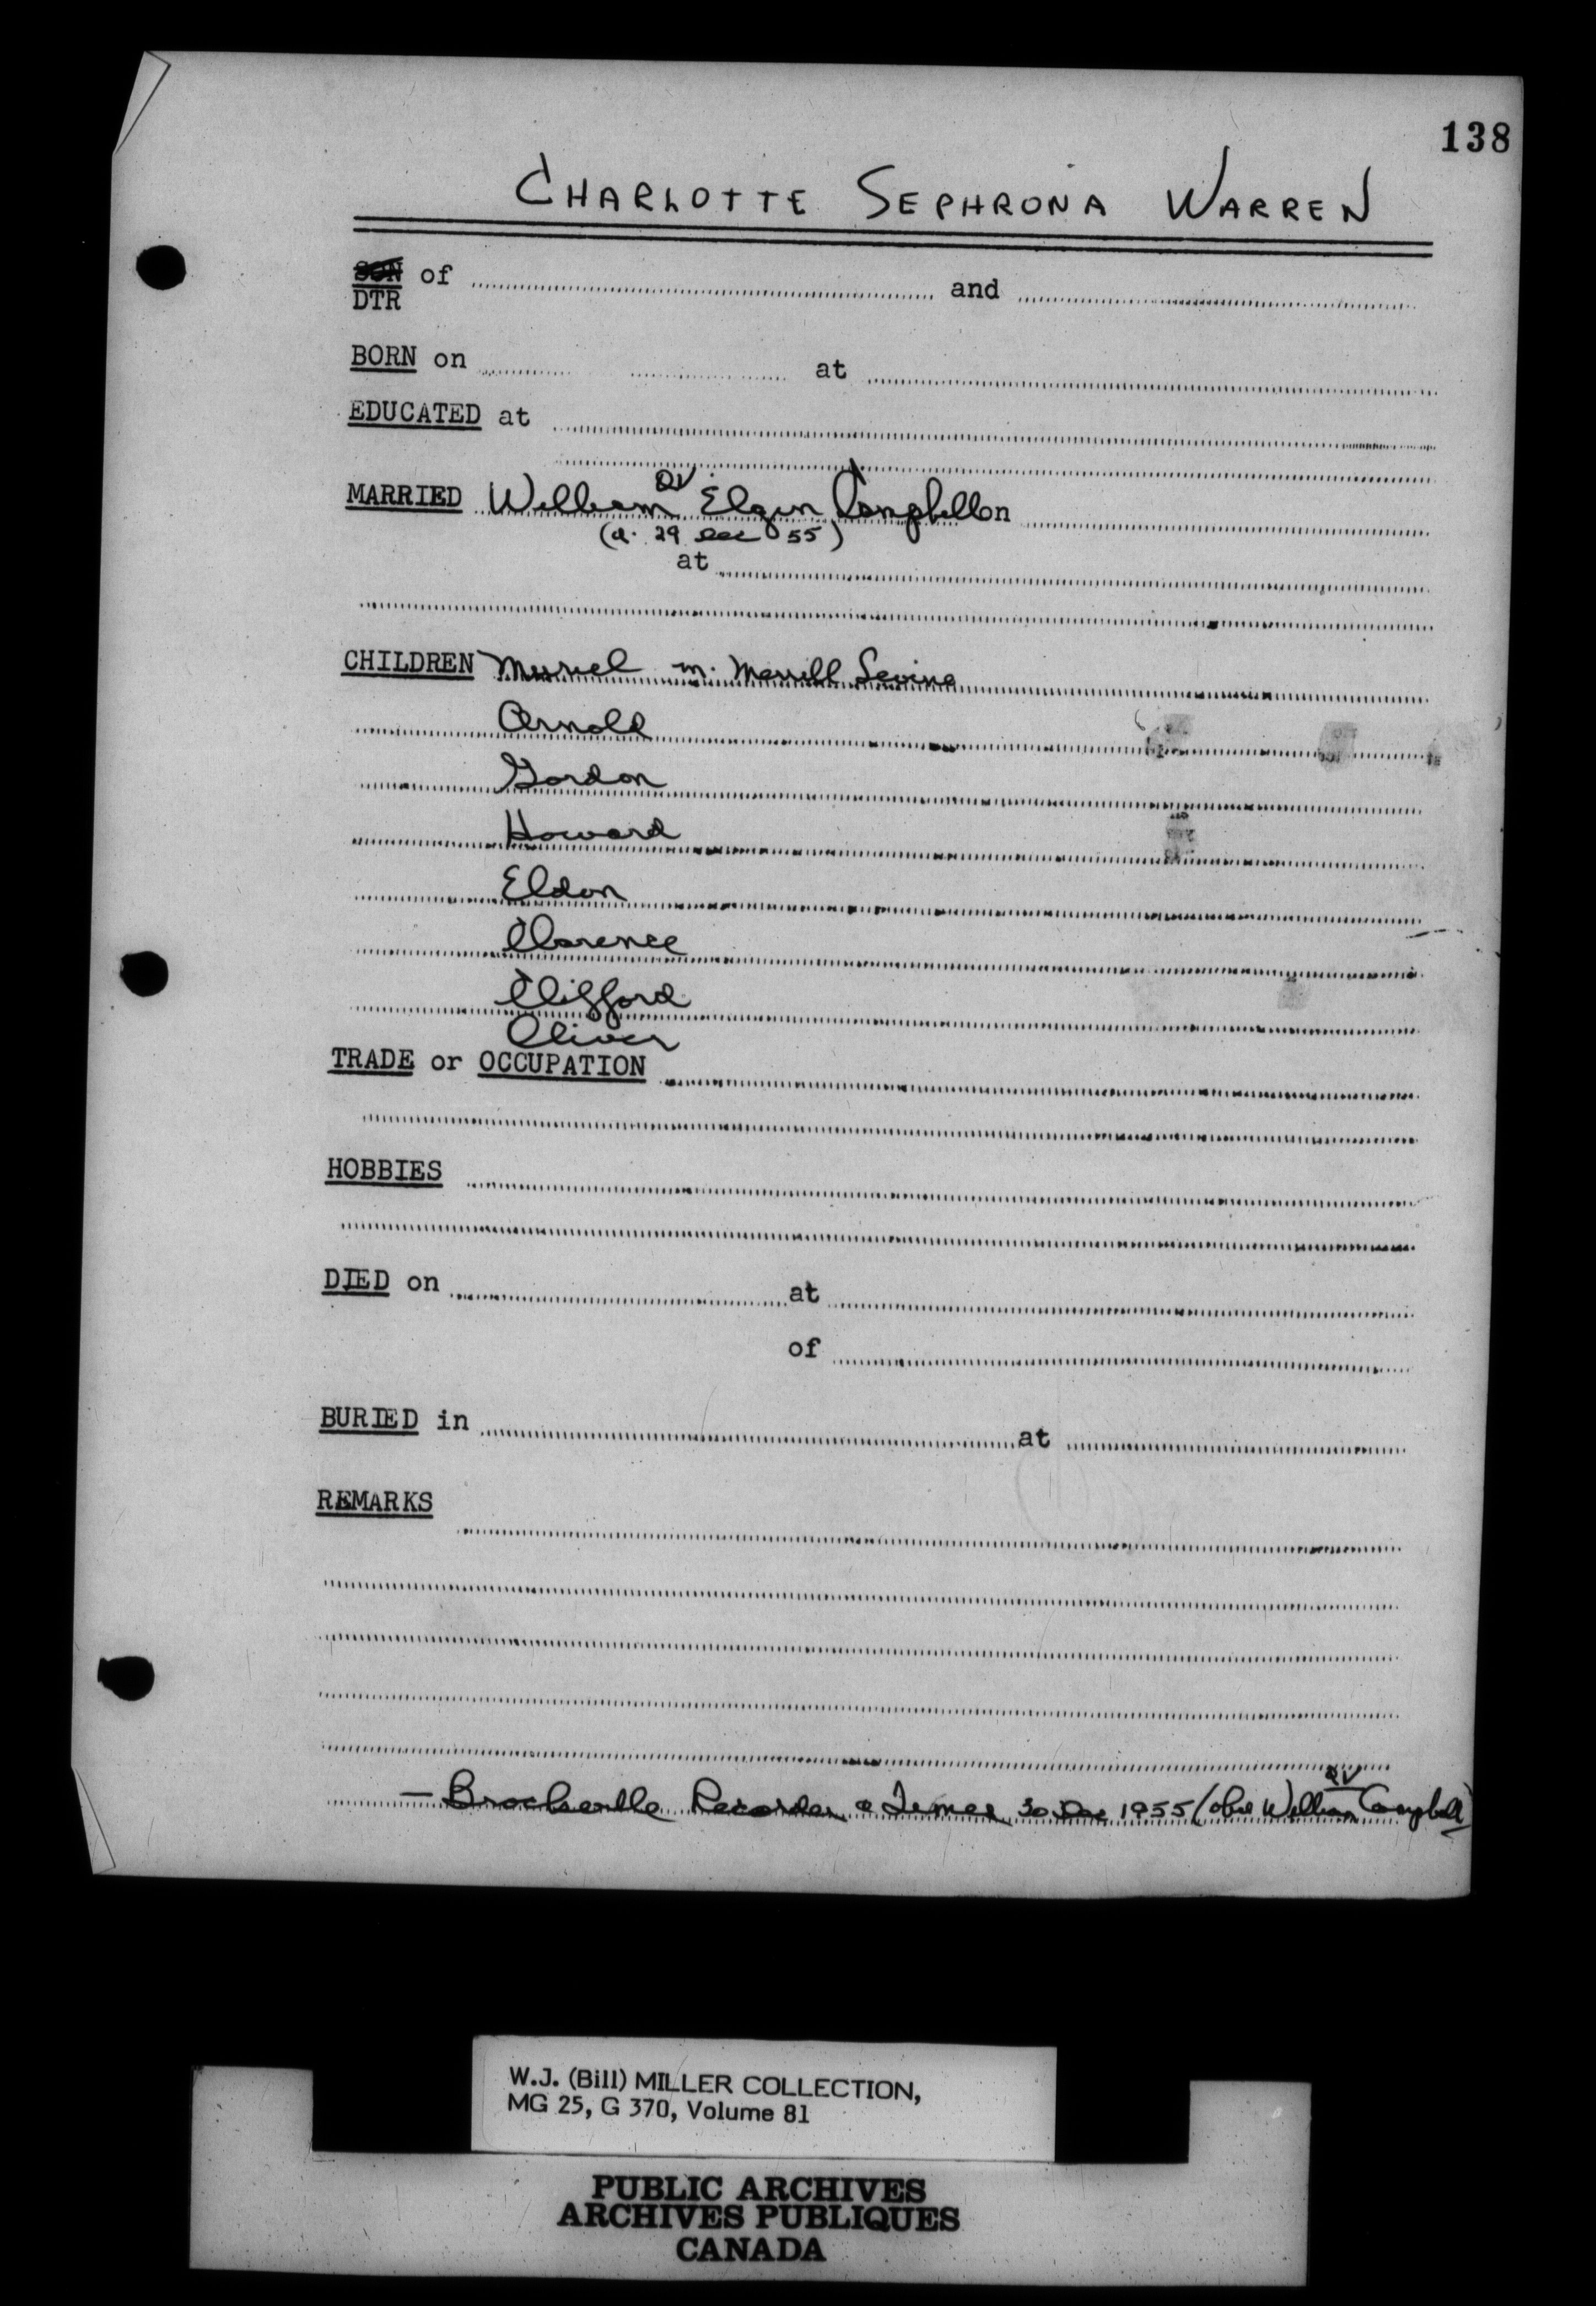 138
CHARLOTTE SEPHRONA WARREN
SON of and
DTR
BORN on at
EDUCATED at
QV
MARRIED William Elgin Campbell on
(d. 29 Dec 55)
at
CHILDREN Muriel m. Merrill Levine
Arnold
Gordon
Howard
Eldon
Clarence
Clifford
Oliver
TRADE or OCCUPATION
HOBBIES
DIED on at
of
BURIED in at
REMARKS
QV
— Brockville Recorder & Times 30 Dec 1955 (obit William Campbell)
W.J. (Bill) MILLER COLLECTION,
MG 25, G 370, Volume 81
PUBLIC ARCHIVES
ARCHIVES PUBLIQUES
CANADA